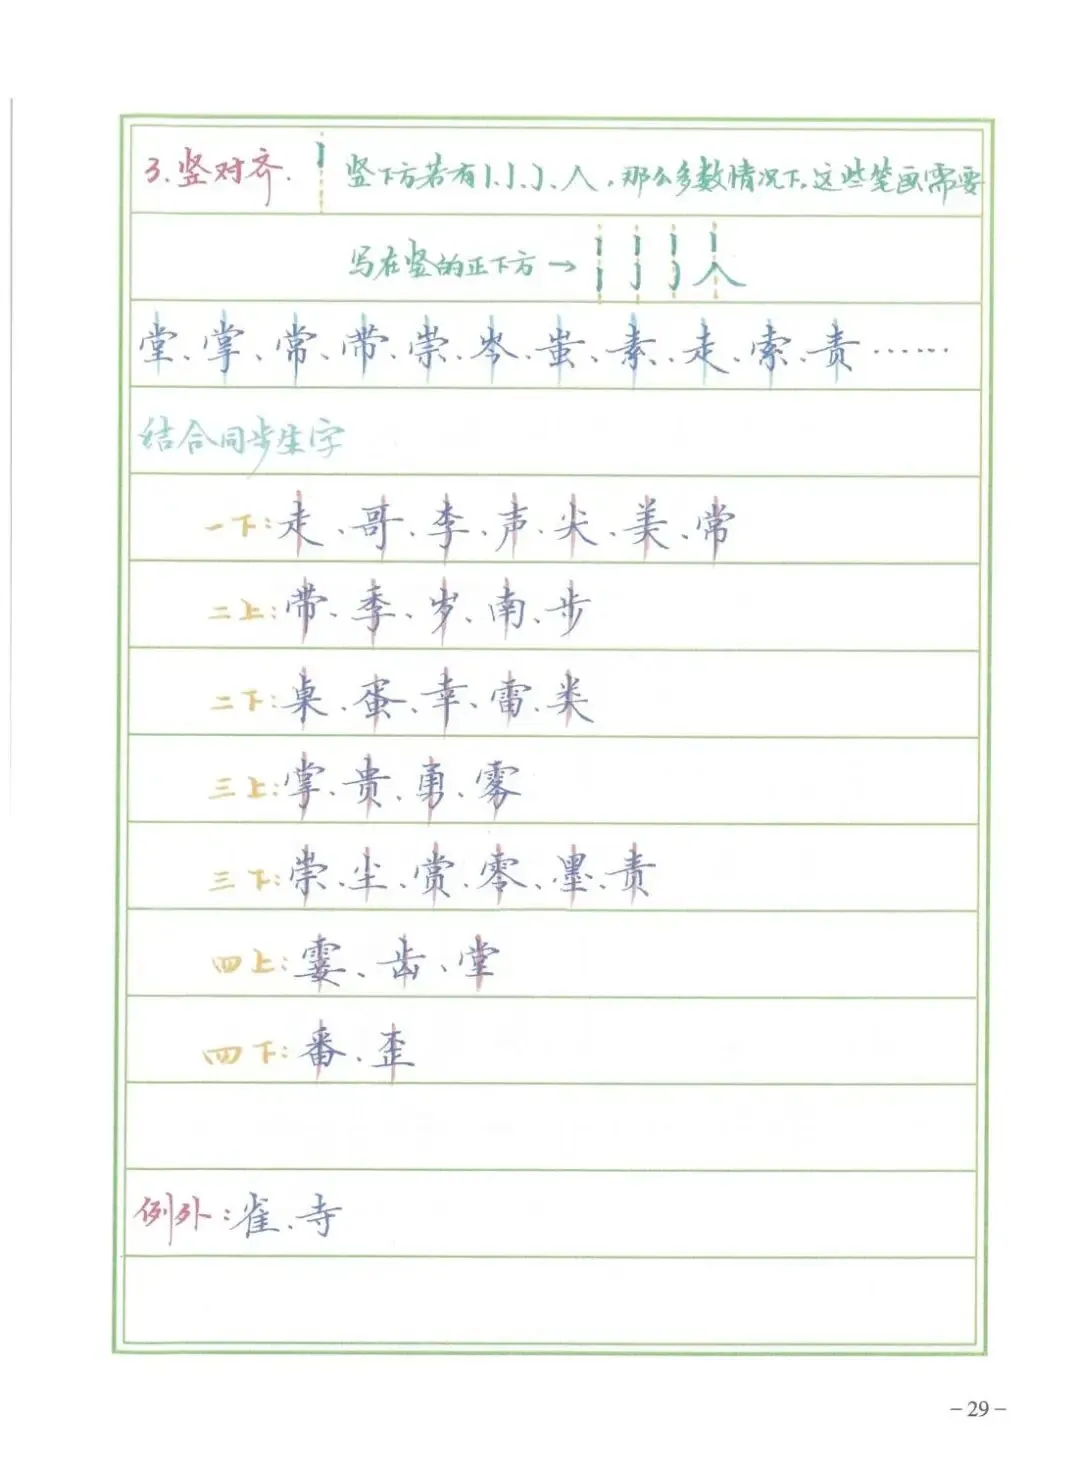 3.竖对齐. 竖下方若有丨、亅、㇁、人,那么多数情况下,这些笔画需要
写在竖的正下方→
堂、掌、常、带、崇、岑、蚩、素、走、索、责……
结合同步生字
一下:走、哥、李、声、尖、美、常
二上:带、季、岁、南、步
二下:桌、蛋、幸、雷、类
三上:掌、贵、勇、雾
三下:崇、尘、赏、零、墨、责
四上:霎、齿、堂
四下:番、歪
例外:雀、寺
-29-